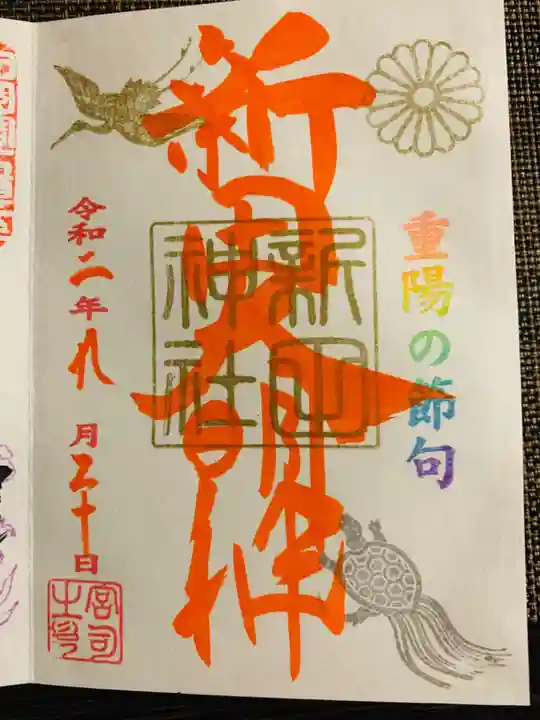 重陽の節句
新田大明神
新田
神社
令和二年九月三十日
宮司
之印